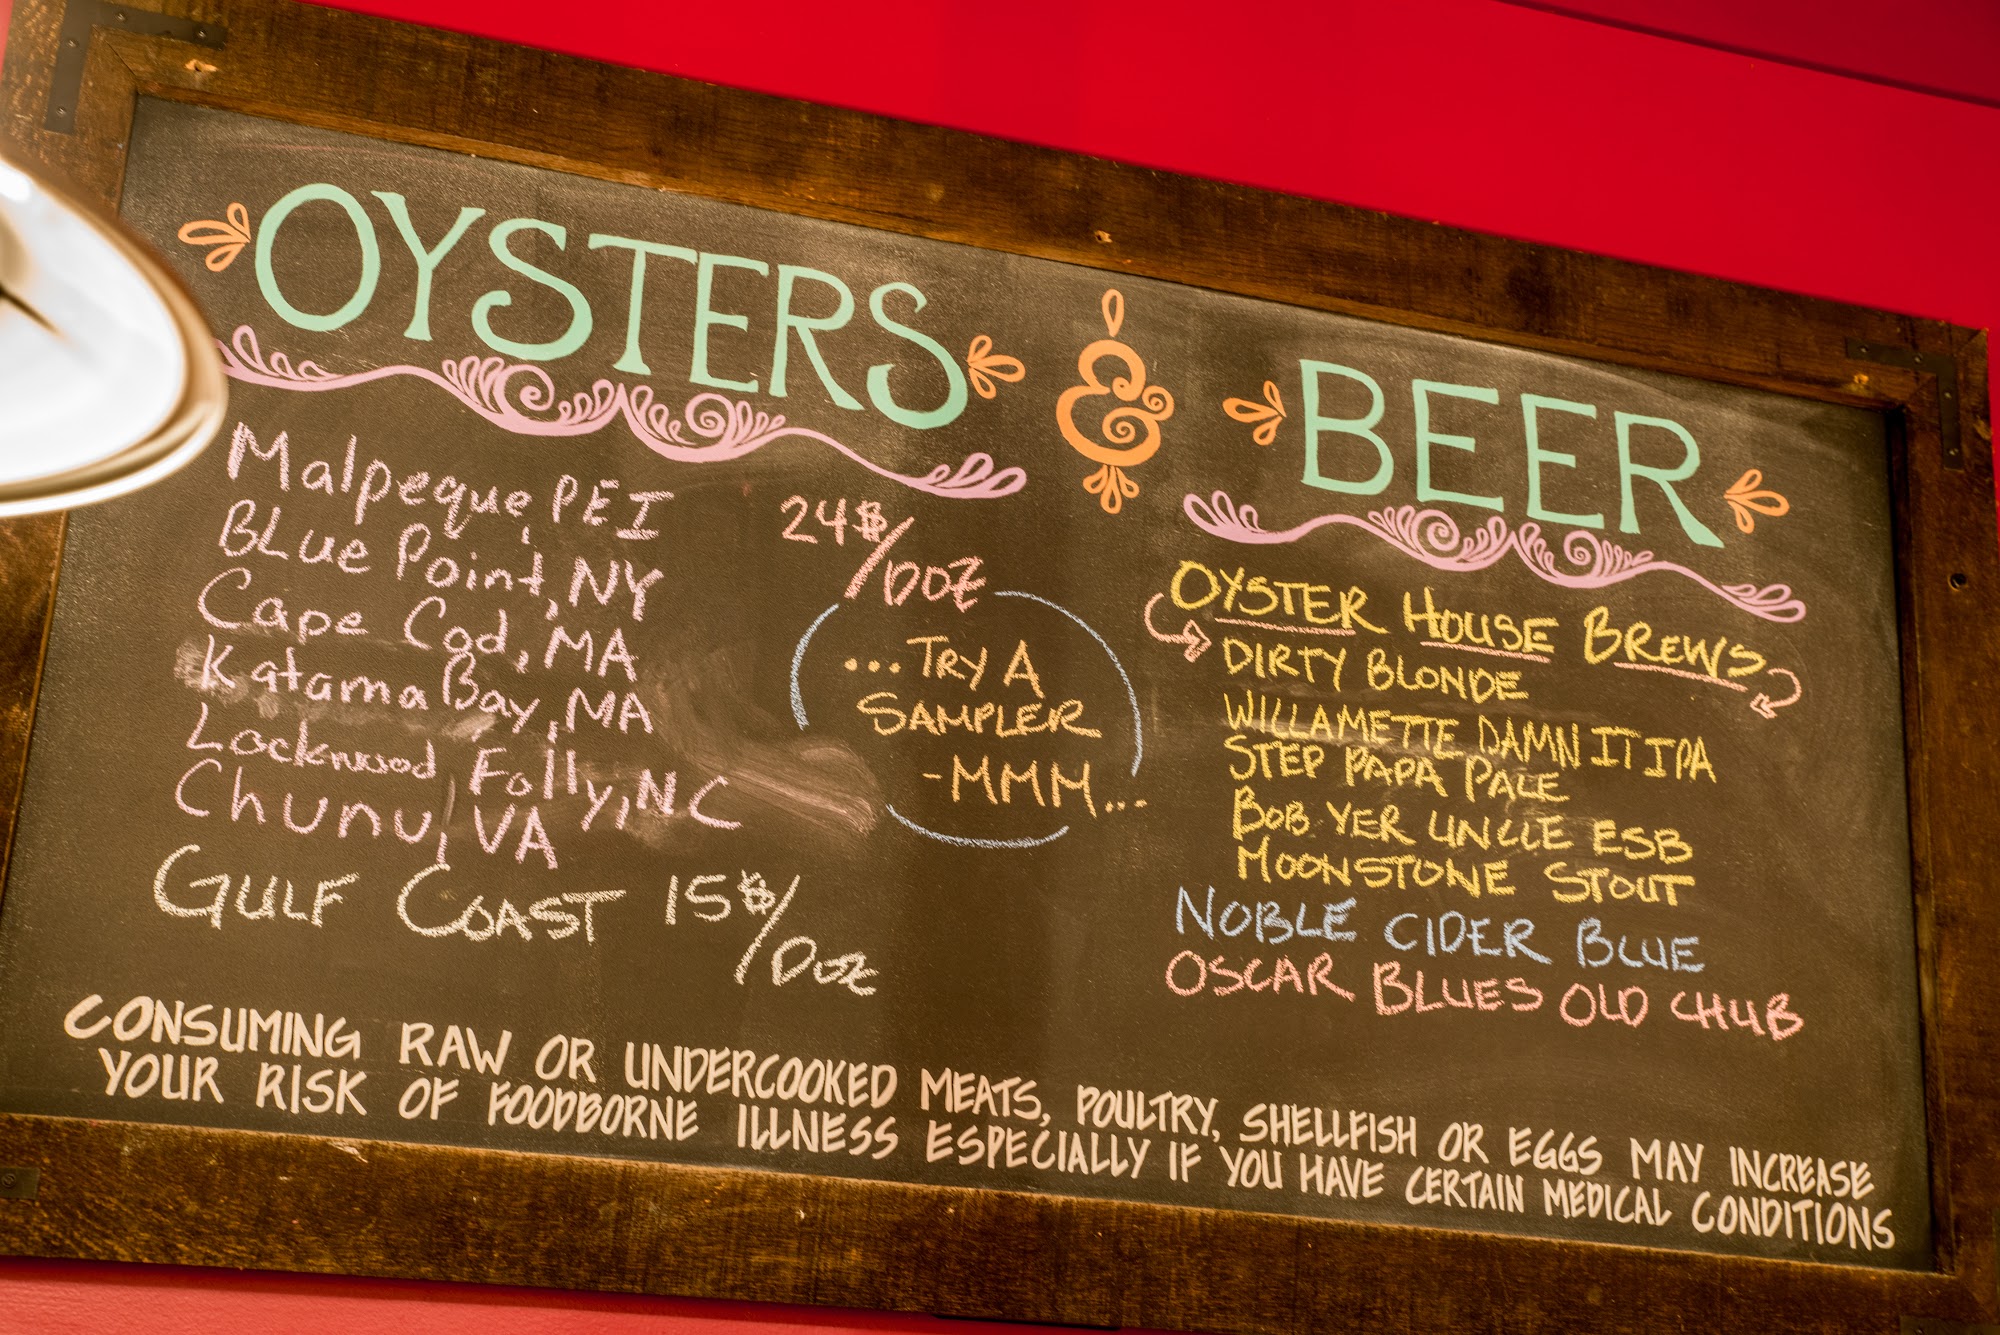 OYSTERS & BEER
Malpeque, PEI
BLue Point, NY
Cape Cod, MA
Katama Bay, MA
Lockwood Folly, NC
Chunu, VA
GULF COAST 15$/Doz
24$/DOZ
...TRY A
SAMPLER
-MMM...
OYSTER HOUSE BREWS
DIRTY BLONDE
WILLAMETTE DAMN IT IPA
STEP PAPA PALE
BOB YER UNCLE ESB
MOONSTONE STOUT
NOBLE CIDER BLUE
OSCAR BLUES OLD CHUB
CONSUMING RAW OR UNDERCOOKED MEATS, POULTRY, SHELLFISH OR EGGS MAY INCREASE
YOUR RISK OF FOODBORNE ILLNESS ESPECIALLY IF YOU HAVE CERTAIN MEDICAL CONDITIONS